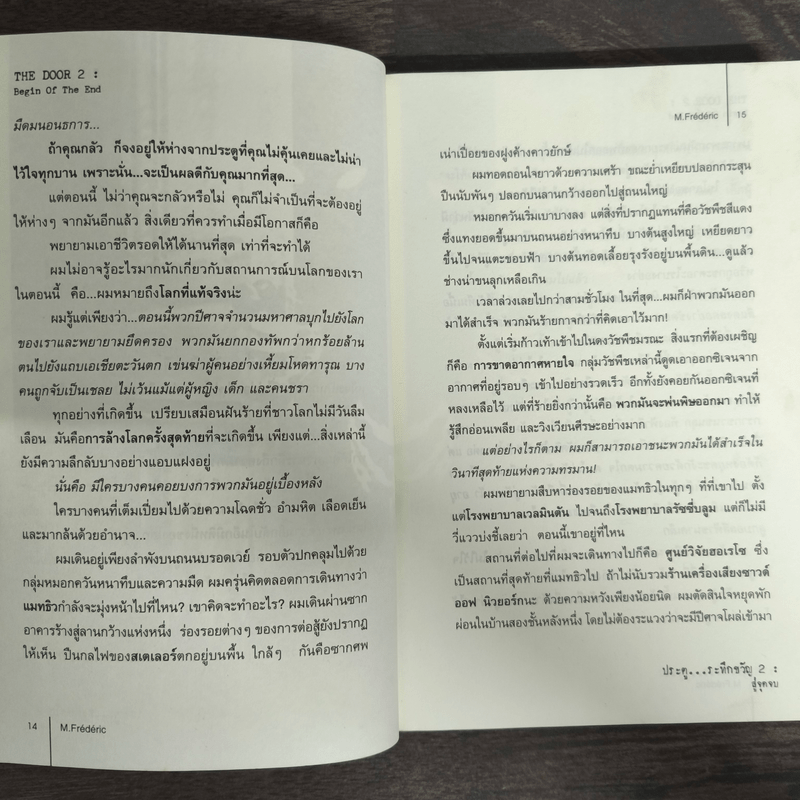 THE DOOR 2 :
Begin Of The End
มืดมนอนธการ...
ถ้าคุณกลัว ก็จงอยู่ให้ห่างจากประตูที่คุณไม่คุ้นเคยและไม่น่า
ไว้ใจทุกบาน เพราะนั่น...จะเป็นผลดีกับคุณมากที่สุด...
แต่ตอนนี้ ไม่ว่าคุณจะกลัวหรือไม่ คุณก็ไม่จำเป็นที่จะต้องอยู่
ให้ห่างๆ จากมันอีกแล้ว สิ่งเดียวที่ควรทำเมื่อมีโอกาสก็คือ
พยายามเอาชีวิตรอดให้ได้นานที่สุด เท่าที่จะทำได้
ผมไม่อาจรู้อะไรมากนักเกี่ยวกับสถานการณ์บนโลกของเรา
ในตอนนี้ คือ...ผมหมายถึงโลกที่แท้จริงน่ะ
ผมรู้แต่เพียงว่า...ตอนนี้พวกปีศาจจำนวนมหาศาลบุกไปยังโลก
ของเราและพยายามยึดครอง พวกมันยกกองทัพกว่าหกร้อยล้าน
ตนไปยังแถบเอเชียตะวันตก เข่นฆ่าผู้คนอย่างเหี้ยมโหดทารุณ บาง
คนถูกจับเป็นเชลย ไม่เว้นแม้แต่ผู้หญิง เด็ก และคนชรา
ทุกอย่างที่เกิดขึ้น เปรียบเสมือนฝันร้ายที่ชาวโลกไม่มีวันลืม
เลือน มันคือการล้างโลกครั้งสุดท้ายที่จะเกิดขึ้น เพียงแต่...สิ่งเหล่านี้
ยังมีความลึกลับบางอย่างแอบแฝงอยู่
นั่นคือ มีใครบางคนคอยบงการพวกมันอยู่เบื้องหลัง
ใครบางคนที่เต็มเปี่ยมไปด้วยความโฉดชั่ว อำมหิต เลือดเย็น
และมากล้นด้วยอำนาจ...
ผมเดินอยู่เพียงลำพังบนถนนบรอดเวย์ รอบตัวปกคลุมไปด้วย
กลุ่มหมอกควันหนาทึบและความมืด ผมครุ่นคิดตลอดการเดินทางว่า
แมททิวกำลังจะมุ่งหน้าไปที่ไหน? เขาคิดจะทำอะไร? ผมเดินผ่านซาก
อาคารร้างสู่ลานกว้างแห่งหนึ่ง ร่องรอยต่างๆ ของการต่อสู้ยังปรากฏ
ให้เห็น ปืนกลไฟของสเตเลอร์ตกอยู่บนพื้น ใกล้ๆ กันคือซากศพ
14
M.Frédéric
M.Frédéric
15
เน่าเปื่อยของฝูงค้างคาวยักษ์
ผมทอดถอนใจยาวด้วยความเศร้า ขณะย่ำเหยียบปลอกกระสุน
ปืนนับพันๆ ปลอกบนลานกว้างออกไปสู่ถนนใหญ่
หมอกควันเริ่มเบาบางลง แต่สิ่งที่ปรากฏแทนที่คือวัชพืชสีแดง
ซึ่งแทงยอดขึ้นมาบนถนนอย่างหนาทึบ บางต้นสูงใหญ่ เหยียดยาว
ขึ้นไปจนแตะขอบฟ้า บางต้นทอดเลื้อยรุงรังอยู่บนพื้นดิน...ดูแล้ว
ช่างน่าขนลุกเหลือเกิน
เวลาล่วงเลยไปกว่าสามชั่วโมง ในที่สุด...ผมก็ฝ่าพวกมันออก
มาได้สำเร็จ พวกมันร้ายกาจกว่าที่คิดเอาไว้มาก!
ตั้งแต่เริ่มก้าวเท้าเข้าไปในดงวัชพืชมรณะ สิ่งแรกที่ต้องเผชิญ
ก็คือ การขาดอากาศหายใจ กลุ่มวัชพืชเหล่านี้ดูดเอาออกซิเจนจาก
อากาศที่อยู่รอบๆ เข้าไปอย่างรวดเร็ว อีกทั้งยังคอยกันออกซิเจนที่
หลงเหลือไว้ แต่ที่ร้ายยิ่งกว่านั้นคือ พวกมันจะพ่นพิษออกมา ทำให้
รู้สึกอ่อนเพลีย และวิงเวียนศีรษะอย่างมาก
แต่อย่างไรก็ตาม ผมก็สามารถเอาชนะพวกมันได้สำเร็จใน
วินาทีสุดท้ายแห่งความทรมาน!
ผมพยายามสืบหาร่องรอยของแมททิวในทุกๆ ที่ที่เขาไป ตั้ง
แต่โรงพยาบาลเวลมินตัน ไปจนถึงโรงพยาบาลรัชชี่บลูม แต่ก็ไม่มี
วี่แววบ่งชี้เลยว่า ตอนนี้เขาอยู่ที่ไหน
สถานที่ต่อไปที่ผมจะเดินทางไปก็คือ ศูนย์วิจัยฮอเรโซ ซึ่ง
เป็นสถานที่สุดท้ายที่แมททิวไป ถ้าไม่นับรวมร้านเครื่องเสียงซาวด์
ออฟ นิวยอร์กนะ ด้วยความหวังเพียงน้อยนิด ผมตัดสินใจหยุดพัก
ผ่อนในบ้านสองชั้นหลังหนึ่ง โดยไม่ต้องระแวงว่าจะมีปีศาจโผล่เข้ามา
ประตู...ระทึกขวัญ 2 :
สู่จุดจบ